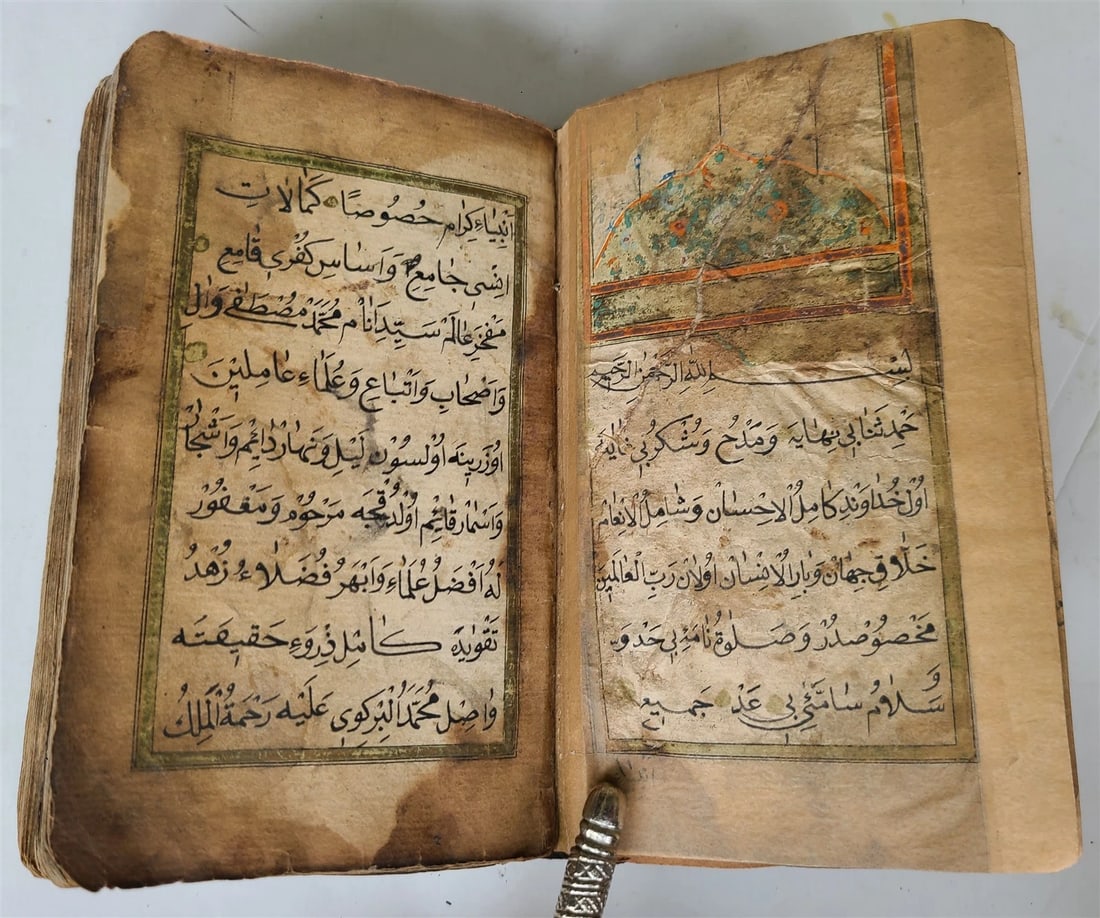 بسم الله الرحمن الرحيم
حَمْد ثَنَا بِي نِهايَه وَمَدْحُ وَشُكْر بِي غايَه
اُول خُداوَنْدِ كامِلُ الْاِحْسان وَشامِلُ الْاِنْعام
خَلَّاقِ جِهان وَبارِ الْاِنْسان اُولان رَبِّ الْعالَمِين
مَخْصُوصْدُرْ وَصَلوةُ نامَئِ بِي حَدْ وَ
سَلامُ سامَئِ بِي عَدْ جَمِيع
اَنْبِيَاءِ كِرام حُصُوصًا كَمالاتِ
اِنْسِي جامِع وَاَساسِ كُفْرِي قامِع
مَفْخَرِ عالَم سَيِّدِ اَنام مُحَمَّدْ مُصْطَفى وَال
وَاَصْحابِ وَاَتْباع وَعُلَماءِ عامِلِينَ
اُوزَرِينَه اُولْسُون لَيْل وَنَهار دائِم وَاَشْجار
وَاَسْمار قائِم اُولْدُقْجَه مَرْحُوم وَمَغْفُور
لَهُ اَفْضَلِ عُلَماء وَاَبْهَرِ فُضَلاء زُهْدُ
تَقْوَيدَه كامِل ذِرْوَءِ حَقِيقَتَه
واصِل مُحَمَّدُ الْبِرْكَوِي عَلَيْهِ رَحْمَةُ الْمَلِكُ